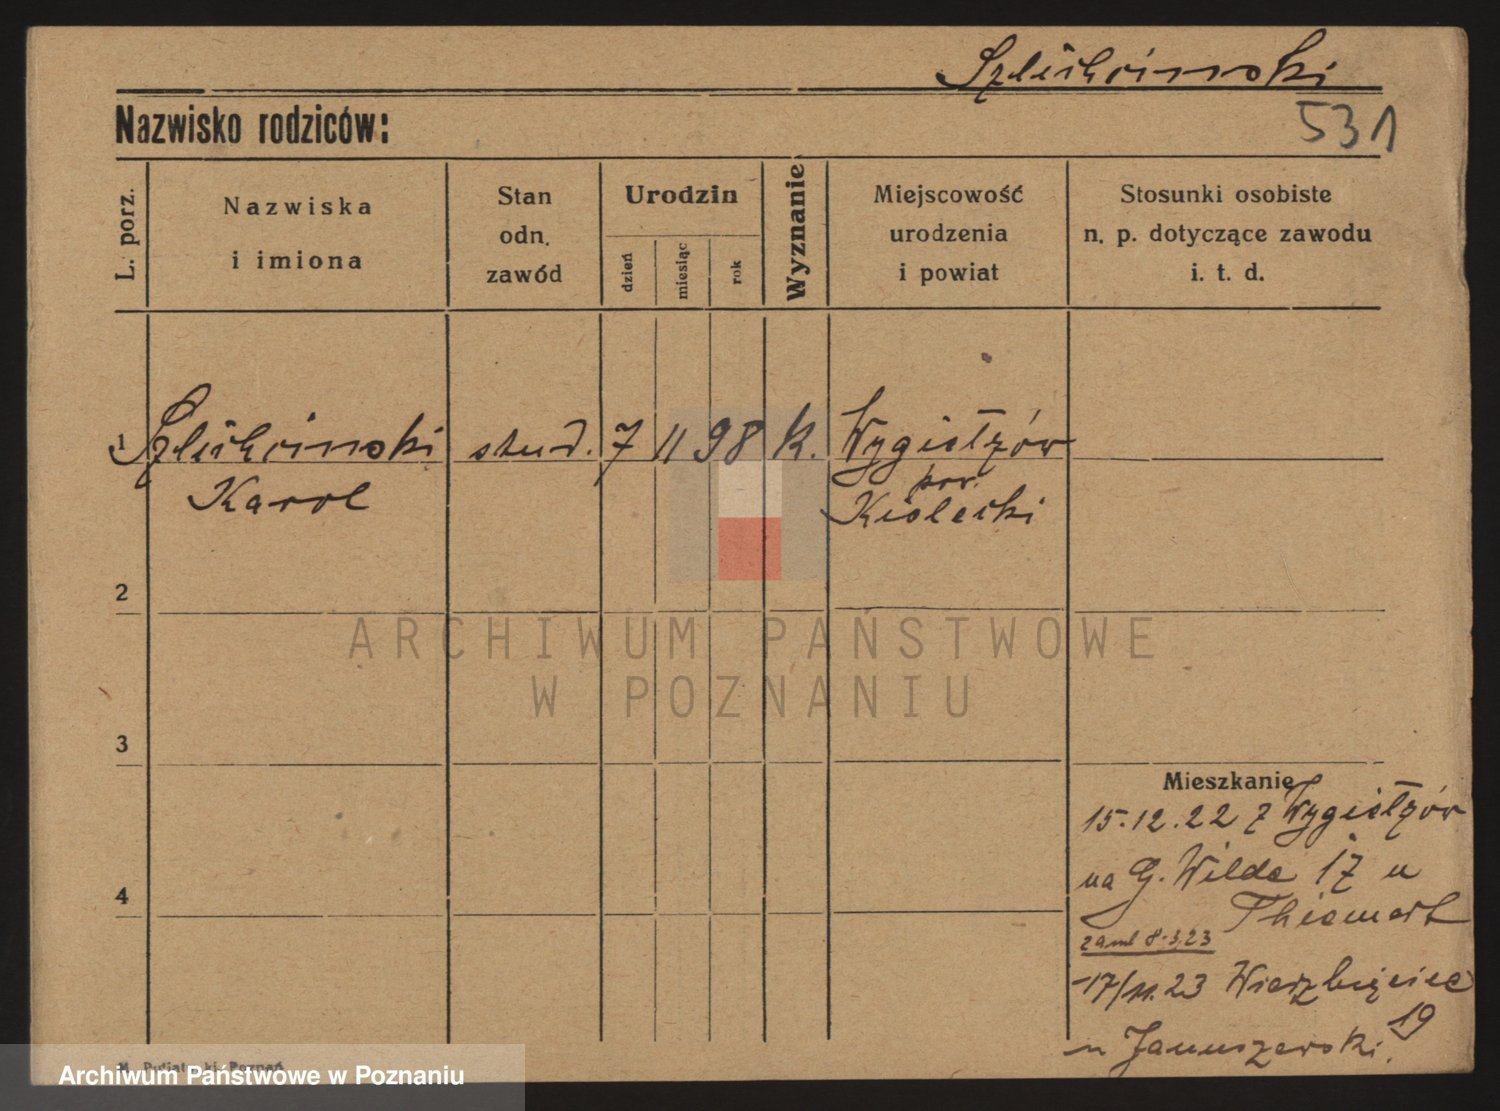 Szlichcinski
Nazwisko rodziców:
531
L. porz.
Nazwiska
i imiona
Stan
odn.
zawód
Urodzin
dzień
miesiąc
rok
Wyznanie
Miejscowość
urodzenia
i powiat
Stosunki osobiste
n. p. dotyczące zawodu
i. t. d.
1 Szlichcinski stud. 7 11 98 k. Wygiełzów
Karol
pow.
Kielecki
2
3
4
Mieszkanie
15.12.22 z Wygiełzów
na G. Wilda 17 u
zaml 8.3.23
17/11.23 Wierzbięcice
19
u Januszewski.
ARCHIWUM PAŃSTWOWE
W POZNANIU
Poznań
Archiwum Państwowe w Poznaniu